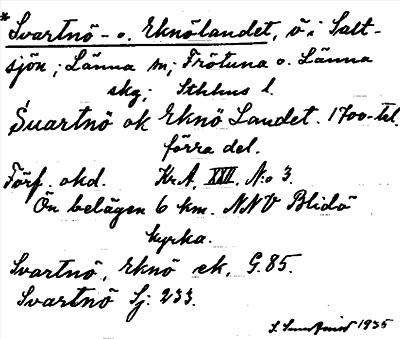 * Svartnö- o. Eknölandet, ö i Salt-
sjön; Länna sn; Frötuna o. Länna
skg; Sthlms l.
Suartnö ok Eknö Landet. 1700-tal.
förra del.
Förf. okd. Kr. A. XXII. N:o 3.
Ön belägen 6 km. NNV Blidö
kyrka.
Svartnö, Eknö ek. G. 85.
Svartnö Sj: 233.
1935